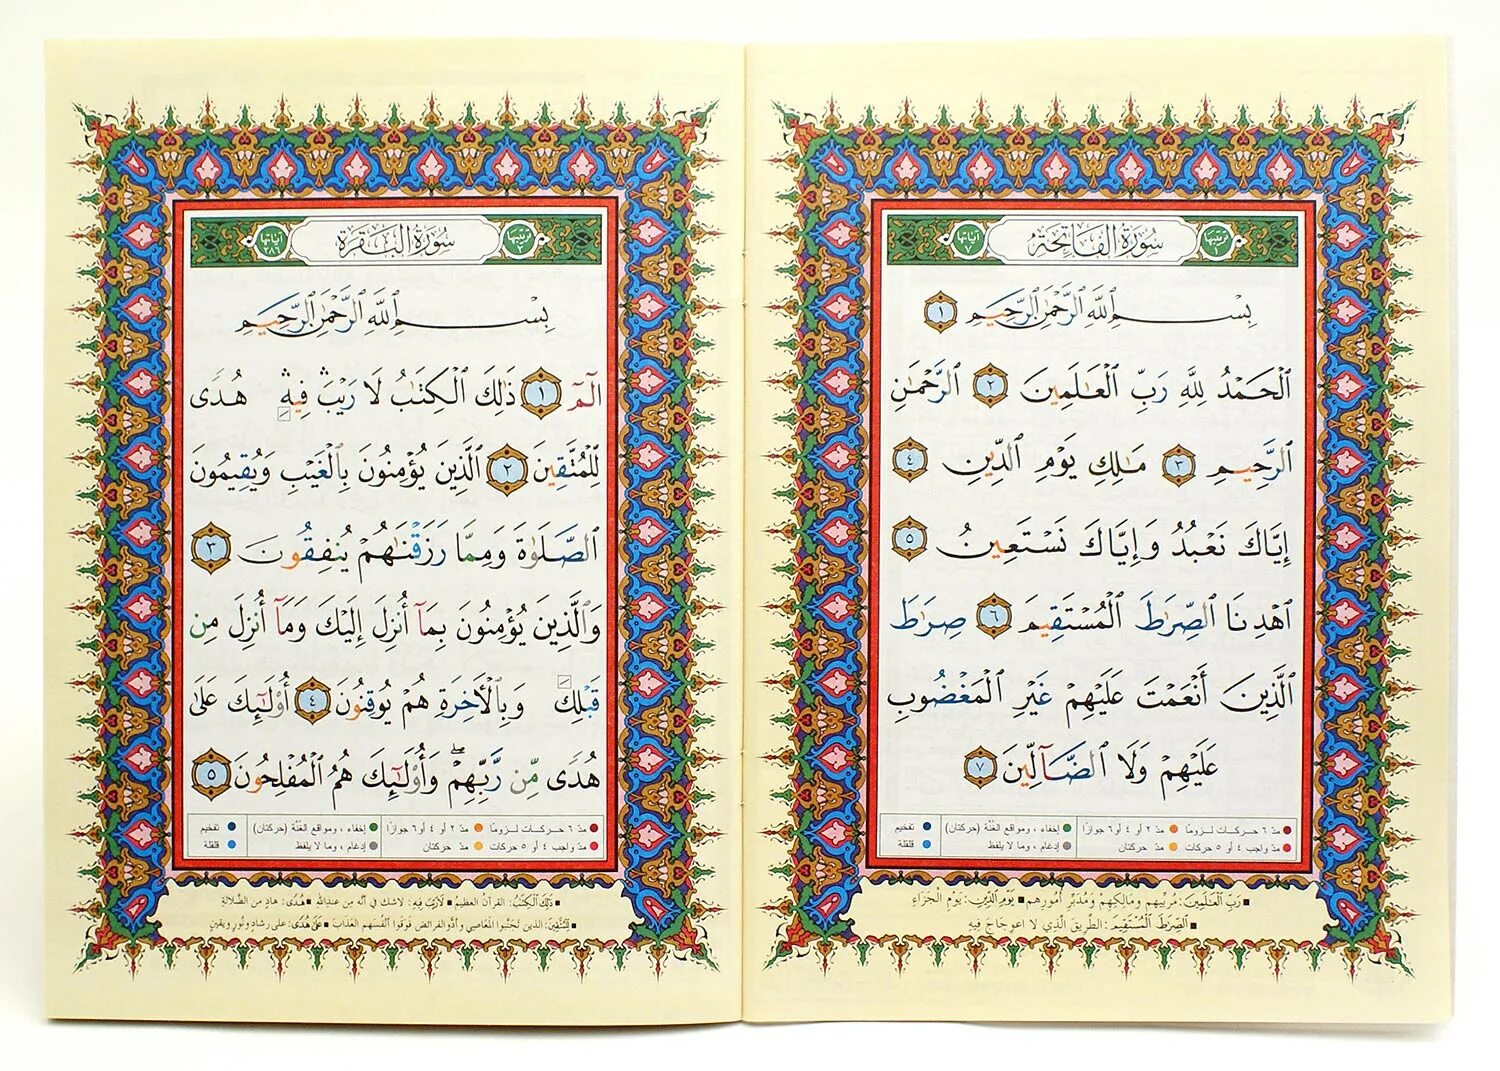 ترتيبها ١
سُورَةُ الْفَاتِحَةِ
آياتها ٧
بِسْمِ ٱللَّهِ ٱلرَّحْمَٰنِ ٱلرَّحِيمِ ١
ٱلْحَمْدُ لِلَّهِ رَبِّ ٱلْعَٰلَمِينَ ٢ ٱلرَّحْمَٰنِ
ٱلرَّحِيمِ ٣ مَٰلِكِ يَوْمِ ٱلدِّينِ ٤
إِيَّاكَ نَعْبُدُ وَإِيَّاكَ نَسْتَعِينُ ٥
ٱهْدِنَا ٱلصِّرَٰطَ ٱلْمُسْتَقِيمَ ٦ صِرَٰطَ
ٱلَّذِينَ أَنْعَمْتَ عَلَيْهِمْ غَيْرِ ٱلْمَغْضُوبِ
عَلَيْهِمْ وَلَا ٱلضَّآلِّينَ ٧
مدّ ٦ حركات لزومًا مدّ ٢ أو ٤ أو ٦ جوازًا إخفاء ، ومواقع الغنّة (حركتان) تفخيم
مدّ واجب ٤ أو ٥ حركات مدّ حركتان إدغام ، وما لا يلفظ قلقلة
رَبِّ الْعَالَمِينَ: مُرَبِّيهِم ومَالِكِهِم ومُدَبِّرِ أمُورِهِم يَوْمِ الدِّينِ: يَوْمِ الجَزَاءِ
الصِّرَاطَ الْمُسْتَقِيمَ: الطَّرِيقَ الَّذِي لا اعوجَاجَ فِيهِ
ترتيبها ٢
سُورَةُ الْبَقَرَةِ
آياتها ٢٨٦
بِسْمِ ٱللَّهِ ٱلرَّحْمَٰنِ ٱلرَّحِيمِ
الٓمٓ ١ ذَٰلِكَ ٱلْكِتَٰبُ لَا رَيْبَ ۛ فِيهِ ۛ هُدًى
لِّلْمُتَّقِينَ ٢ ٱلَّذِينَ يُؤْمِنُونَ بِٱلْغَيْبِ وَيُقِيمُونَ
ٱلصَّلَوٰةَ وَمِمَّا رَزَقْنَٰهُمْ يُنفِقُونَ ٣
وَٱلَّذِينَ يُؤْمِنُونَ بِمَآ أُنزِلَ إِلَيْكَ وَمَآ أُنزِلَ مِن
قَبْلِكَ وَبِٱلْأَخِرَةِ هُمْ يُوقِنُونَ ٤ أُو۟لَٰٓئِكَ عَلَىٰ
هُدًى مِّن رَّبِّهِمْ ۖ وَأُو۟لَٰٓئِكَ هُمُ ٱلْمُفْلِحُونَ ٥
مدّ ٦ حركات لزومًا مدّ ٢ أو ٤ أو ٦ جوازًا إخفاء ، ومواقع الغنّة (حركتان) تفخيم
مدّ واجب ٤ أو ٥ حركات مدّ حركتان إدغام ، وما لا يلفظ قلقلة
ذَلِكَ الْكِتَابُ: القرآن العظيم لَا رَيْبَ فِيهِ: لاشك في أنّه مِن عِندِ الله هُدًى: هادٍ مِن الضَّلالةِ
لِلْمُتَّقِينَ: الذين تجنّبوا المعاصِي وأدَّوا الفرائض فوقَوا أنفُسَهم العذابَ عَلَى هُدًى: على رشادٍ ونُورٍ ويقينٍ